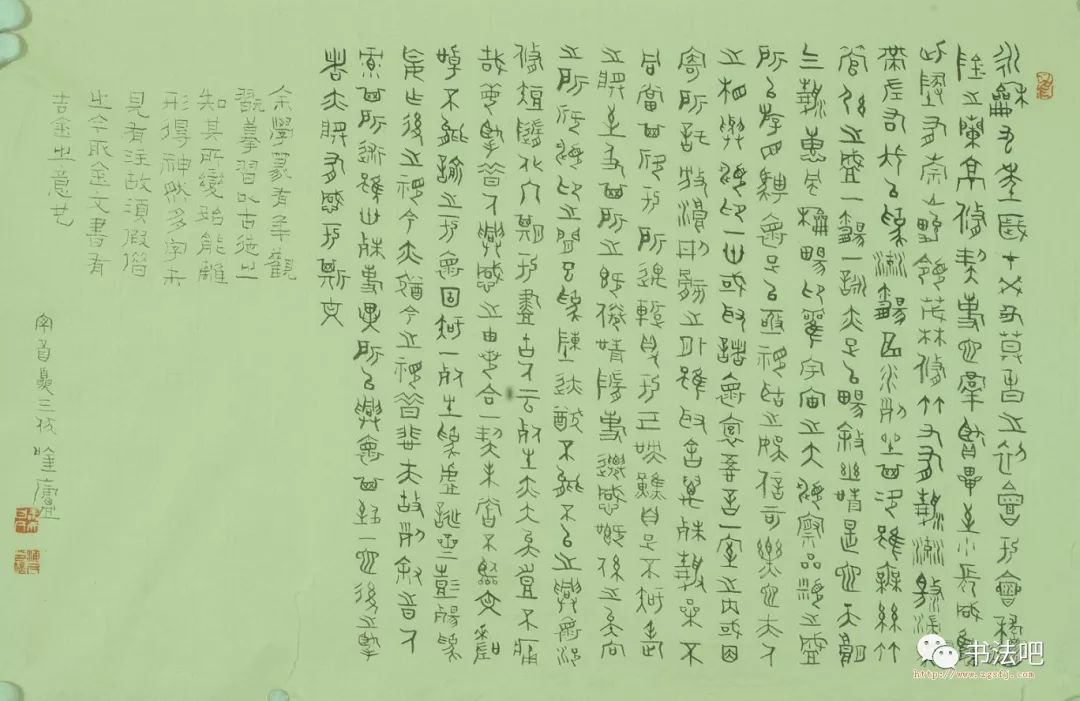 永龢九年歲在癸丑莫春之初會于會稽山
陰之蘭亭修禊事也羣賢畢至少長咸集
此地有崇山峻領茂林修竹又有清流激湍
帶左右引以為流觴曲水列坐其次雖無絲竹
管弦之盛一觴一詠亦足以暢敘幽情是日也天朗
氣清惠風和暢仰觀宇宙之大俯察品類之盛
所以游目騁懷足以極視聽之娛信可樂也夫人
之相與俯仰一世或取諸懷抱晤言一室之內或因
寄所託放浪形骸之外雖取舍萬殊靜躁不
同當其欣于所遇暫得于己快然自足不知老
之將至及其所之既倦情隨事遷感慨係之矣向
之所欣俯仰之間以為陳迹猶不能不以之興懷況
修短隨化終期于盡古人云死生亦大矣豈不痛
哉每攬昔人興感之由若合一契未嘗不臨文嗟
悼不能喻之于懷固知一死生為虛誕齊彭殤為
妄作後之視今亦猶今之視昔悲夫故列敘時人
錄其所述雖世殊事異所以興懷其致一也後之攬
者亦將有感于斯文
余學篆有年觀
翫摹習以古徒之
知其所變殆能離
形得神然多字未
見有注故須假借
之今取金文書有
吉金之意
首夏三
书法吧
http://www.zgsdj.com